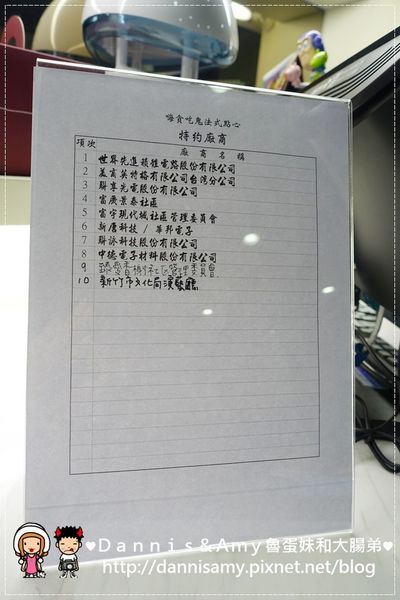 嗨食吃鬼法式點心
特約廠商
項次 廠商名稱
1 世界先進積體電路股份有限公司
2 美商英特格有限公司台灣分公司
3 聯享光電股份有限公司
4 富廣景泰社區
5 富宇現代城社區管理委員會
6 新唐科技 / 華邦電子
7 聯詠科技股份有限公司
8 中德電子材料股份有限公司
9 社區管理委員會
10 新竹市文化局演藝廳
♥Dannis&Amy魯蛋妹和大腸弟♥
http://dannisamy.pixnet.net/blog